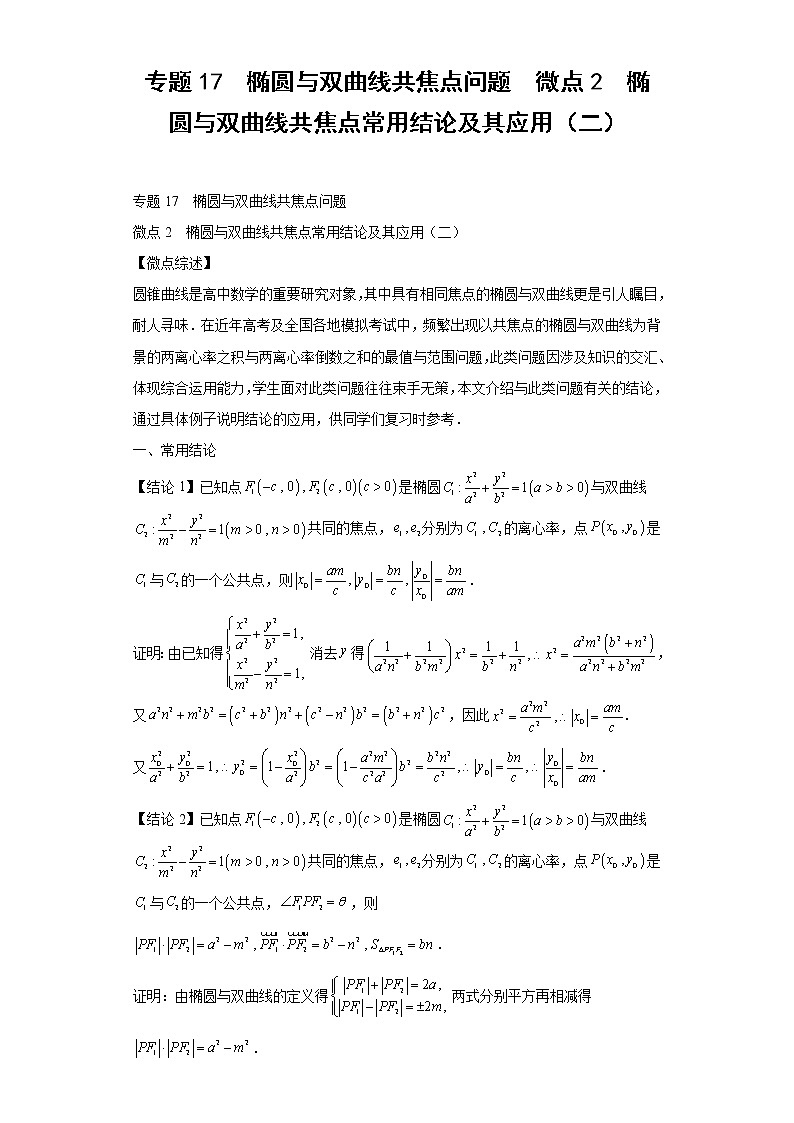 专题17 椭圆与双曲线共焦点问题 微点2 椭
圆与双曲线共焦点常用结论及其应用（二）
专题 17 椭圆与双曲线共焦点问题
微点 2 椭圆与双曲线共焦点常用结论及其应用（二）
【微点综述】
圆锥曲线是高中数学的重要研究对象，其中具有相同焦点的椭圆与双曲线更是引人瞩目，
耐人寻味．在近年高考及全国各地模拟考试中，频繁出现以共焦点的椭圆与双曲线为背
景的两离心率之积与两离心率倒数之和的最值与范围问题，此类问题因涉及知识的交汇、
体现综合运用能力，学生面对此类问题往往束手无策，本文介绍与此类问题有关的结论，
通过具体例子说明结论的应用，供同学们复习时参考．
一、常用结论
【结论 1】已知点 F₁(−c,0), F₂(c,0)(c>0) 是椭圆 C₁: x²/a² + y²/b² = 1(a>b>0) 与双曲线
C₂: x²/m² − y²/n² = 1(m>0,n>0) 共同的焦点，e₁,e₂ 分别为 C₁,C₂ 的离心率，点 P(x_D,y_D) 是
C₁ 与 C₂ 的一个公共点，则 |x_D| = am/c, |y_D| = bn/c, |y_D/x_D| = bn/am．
证明：由已知得 { x²/a² + y²/b² = 1, x²/m² − y²/n² = 1, 消去 y 得 (1/a²n² + 1/b²m²)x² = 1/b² + 1/n², ∴ x² = a²m²(b²+n²)/(a²n²+b²m²)，
又 a²n² + m²b² = (c²+b²)n² + (c²−n²)b² = (b²+n²)c²，因此 x² = a²m²/c², ∴ |x_D| = am/c．
又 x_D²/a² + y_D²/b² = 1, ∴ y_D² = (1 − x_D²/a²)b² = (1 − a²m²/c²a²)b² = b²n²/c², ∴ |y_D| = bn/c, ∴ |y_D/x_D| = bn/am．
【结论 2】已知点 F₁(−c,0), F₂(c,0)(c>0) 是椭圆 C₁: x²/a² + y²/b² = 1(a>b>0) 与双曲线
C₂: x²/m² − y²/n² = 1(m>0,n>0) 共同的焦点，e₁,e₂ 分别为 C₁,C₂ 的离心率，点 P(x_D,y_D) 是
C₁ 与 C₂ 的一个公共点，∠F₁PF₂ = θ，则
|PF₁|·|PF₂| = a² − m², PF₁·PF₂ = b² − n², S△PF₁F₂ = bn．
证明：由椭圆与双曲线的定义得 { |PF₁| + |PF₂| = 2a, |PF₁| − |PF₂| = ±2m, 两式分别平方再相减得
|PF₁|·|PF₂| = a² − m²．